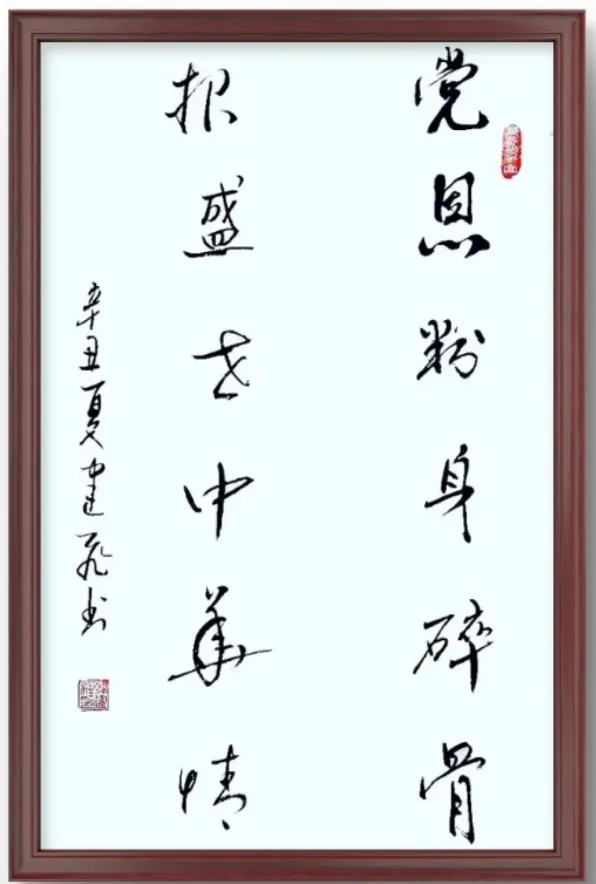 党恩粉身碎骨
报盛世中華情
辛丑夏建飞书